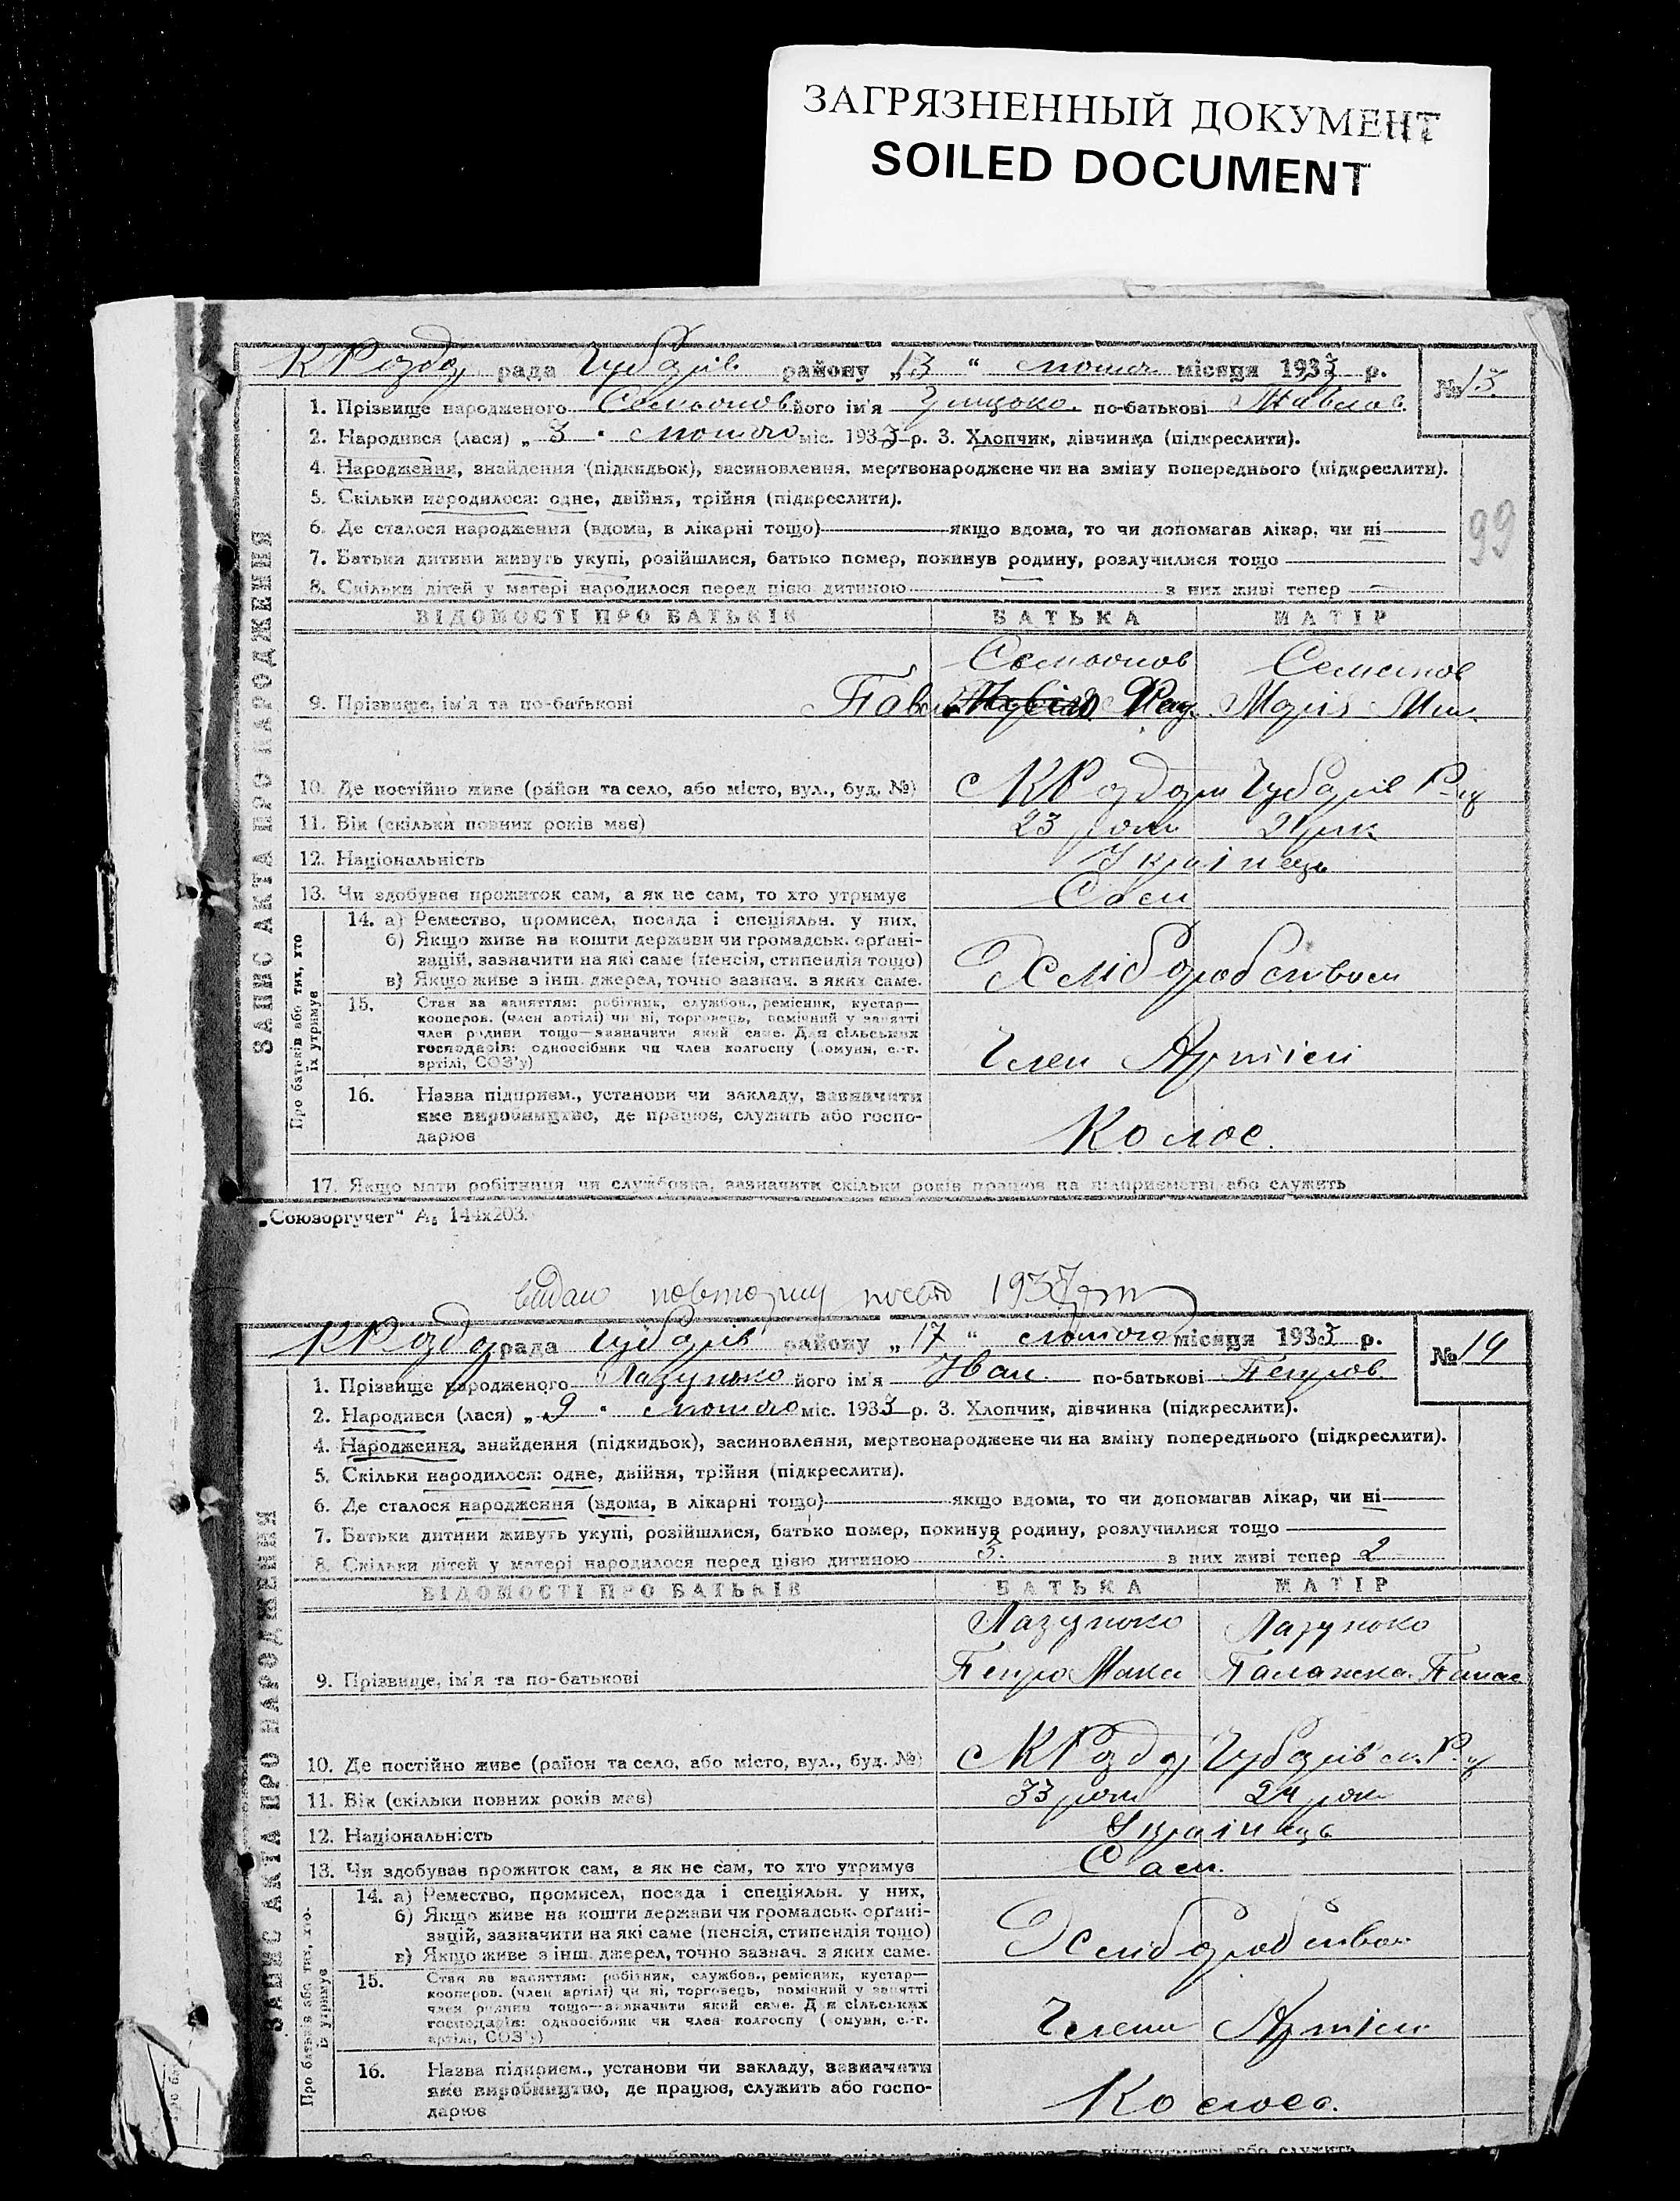 ЗАГРЯЗНЕННЫЙ ДОКУМЕНТ
SOILED DOCUMENT
К Розд рада Чубарів району „13“ лютого місяця 1933 р. № 13.
1. Прізвище народженого його ім'я по-батькові Павлов.
2. Народився (лася) „3“ лютого міс. 1933 р. 3. Хлопчик, дівчинка (підкреслити).
4. Народження, знайдення (підкидьок), засиновлення, мертвонароджене чи на зміну попереднього (підкреслити).
5. Скільки народилося: одне, двійня, трійня (підкреслити).
99
6. Де сталося народження (вдома, в лікарні тощо) якщо вдома, то чи допомагав лікар, чи ні
7. Батьки дитини живуть укупі, розійшлися, батько помер, покинув родину, розлучилися тощо
8. Скільки дітей у матері народилося перед цією дитиною з них живі тепер
ВІДОМОСТІ ПРО БАТЬКІВ БАТЬКА МАТІР
9. Прізвище, ім'я та по-батькові Марія
10. Де постійно живе (район та село, або місто, вул., буд. №) с К Роздори Чубарів
11. Вік (скільки повних років має) 23 роки
12. Національність Українець
13. Чи здобуває прожиток сам, а як не сам, то хто утримує Сам
14. а) Ремество, промисел, посада і спеціяльн. у них.
б) Якщо живе на кошти держави чи громадськ. орґані-
зацій, зазначити на які саме (пенсія, стипендія тощо)
в) Якщо живе з інш. джерел, точно зазнач. з яких саме.
Хліборобством
15. Стан за заняттям: робітник, службов., ремісник, кустар—
кооперов. (член артілі) чи ні, торговець, помічний у занятті
член родини тощо—зазначити який саме. Для сільських
господарів: одноосібник чи член колгоспу (комуни, с.-г.
артілі, СОЗ'у)
Член Артілі
16. Назва підприєм., установи чи закладу, зазначити
яке виробництво, де працює, служить або госпо-
дарює
Колос.
17. Якщо мати робітниця чи службовка, зазначити скільки років працює на підприємстві або служить
Про батьків або тих, хто
їх утримує
ЗАПИС АКТА ПРО НАРОДЖЕННЯ
„Союзоргучет“ А5 144х203.
видан повторну
К Роздо рада Чубарів району „17“ лютого місяця 1933 р. № 14
1. Прізвище народженого Лазунько його ім'я Іван. по-батькові Петров
2. Народився (лася) „9“ лютого міс. 1933 р. 3. Хлопчик, дівчинка (підкреслити).
4. Народження, знайдення (підкидьок), засиновлення, мертвонароджене чи на зміну попереднього (підкреслити).
5. Скільки народилося: одне, двійня, трійня (підкреслити).
6. Де сталося народження (вдома, в лікарні тощо) якщо вдома, то чи допомагав лікар, чи ні
7. Батьки дитини живуть укупі, розійшлися, батько помер, покинув родину, розлучилися тощо
8. Скільки дітей у матері народилося перед цією дитиною 3. з них живі тепер 2
ВІДОМОСТІ ПРО БАТЬКІВ БАТЬКА МАТІР
Лазунько Лазунько
9. Прізвище, ім'я та по-батькові Петро Макс Палажка Панас
10. Де постійно живе (район та село, або місто, вул., буд. №) с К Роздор Чубарів
11. Вік (скільки повних років має) 33 роки 24 роки
12. Національність Українець
13. Чи здобуває прожиток сам, а як не сам, то хто утримує Сам.
14. а) Ремество, промисел, посада і спеціяльн. у них,
б) Якщо живе на кошти держави чи громадськ. орґані-
зацій, зазначити на які саме (пенсія, стипендія тощо)
в) Якщо живе з інш. джерел, точно зазнач. з яких саме.
Хліборобством
15. Стан за заняттям: робітник, службов., ремісник, кустар—
кооперов. (член артілі) чи ні, торговець, помічний у занятті
член родини тощо—зазначити який саме. Для сільських
господарів: одноосібник чи член колгоспу (комуни, с.-г.
артілі, СОЗ'у)
Члени Артілі
16. Назва підприєм., установи чи закладу, зазначити
яке виробництво, де працює, служить або госпо-
дарює
Колос.
Про батьків або тих, хто
їх утримує
ЗАПИС АКТА ПРО НАРОДЖЕННЯ